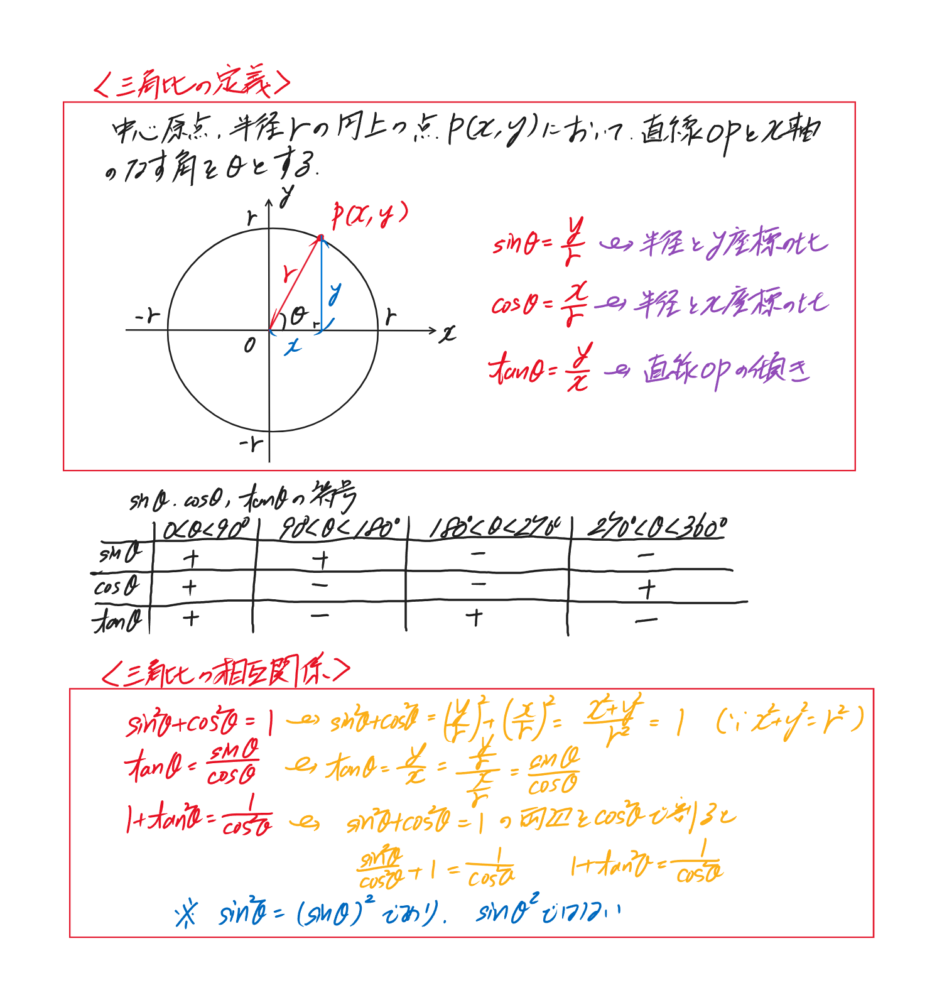 <三角比の定義>
中心原点、半径rの円上の点P(x,y)において、直線OPとx軸
のなす角をθとする.
y
r
P(x,y)
r
y
-r
θ
r
O
x
x
-r
sinθ=y/r → 半径とy座標の比
cosθ=x/r → 半径とx座標の比
tanθ=y/x → 直線OPの傾き
sinθ.cosθ,tanθの符号
0<θ<90° 90°<θ<180° 180°<θ<270° 270°<θ<360°
sinθ + + − −
cosθ + − − +
tanθ + − + −
<三角比の相互関係>
sin²θ+cos²θ=1 → sin²θ+cos²θ=(y/r)²+(x/r)²=(x²+y²)/r²=1 (∵x²+y²=r²)
tanθ=sinθ/cosθ → tanθ=y/x=(y/r)/(x/r)=sinθ/cosθ
1+tan²θ=1/cos²θ → sin²θ+cos²θ=1の両辺をcos²θで割ると
sin²θ/cos²θ+1=1/cos²θ 1+tan²θ=1/cos²θ
※ sin²θ=(sinθ)²であり、sinθ²ではない